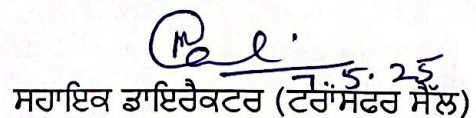 7.5.25
ਸਹਾਇਕ ਡਾਇਰੈਕਟਰ (ਟਰਾਂਸਫਰ ਸੈੱਲ)